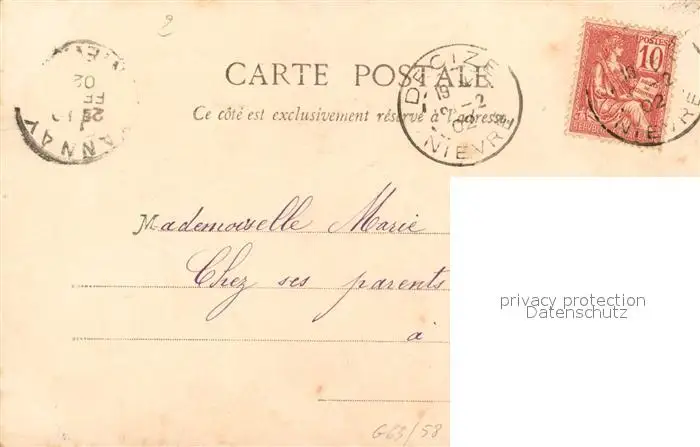 2
CARTE POSTALE
Ce côté est exclusivement réservé à l'adresse
DECIZE
19
2 -2
02
NIEVRE
POSTES
10
02
NIEVRE
ANNAY
02
Mademoiselle Marie
Chez ses parents
à
privacy protection
Datenschutz
G63/58